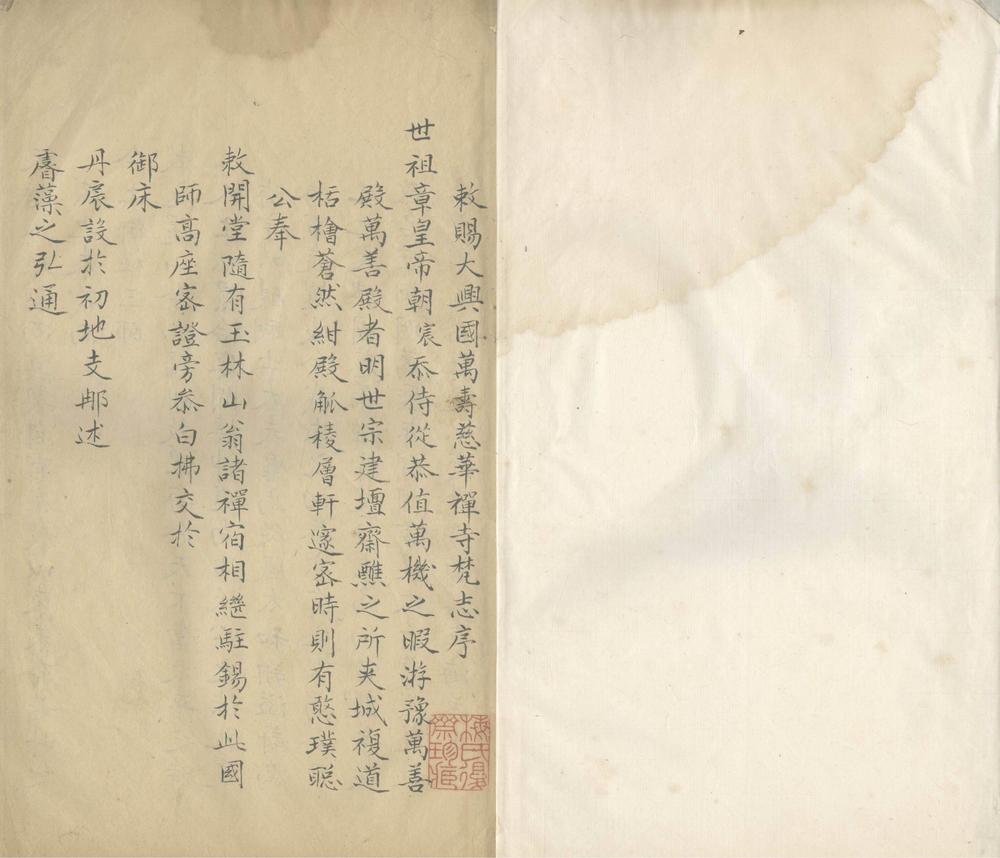 敕賜大興國萬壽慈華禪寺梵志序
世祖章皇帝朝宸忝侍從恭值萬機之暇游豫萬善
殿萬善殿者明世宗建壇齋醮之所夾城複道
栝檜蒼然紺殿觚稜層軒邃密時則有憨璞聰
公奉
敕開堂隨有玉林山翁諸禪宿相繼駐錫於此國
師高座密證旁參白拂交於
御床
丹扆設於初地支那述
睿藻之弘通